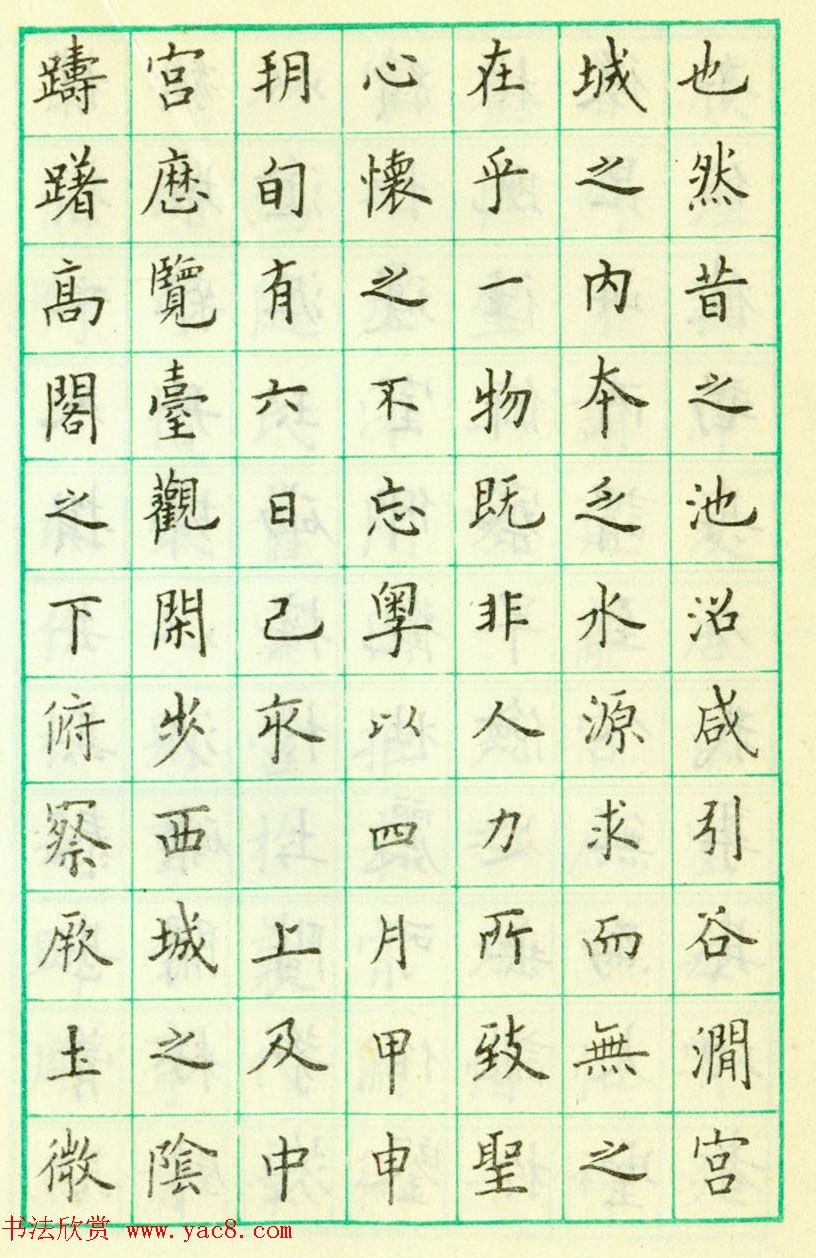 也然昔之池沼咸引谷澗宫
城之内本乏水源求而無之
在乎一物既非人力所致聖
心懷之不忘粤以四月甲申
朔旬有六日己亥上及中
宫歷覽臺觀閑步西城之陰
躊躇髙閣之下俯察厥土微
书法欣赏 www.yac8.com